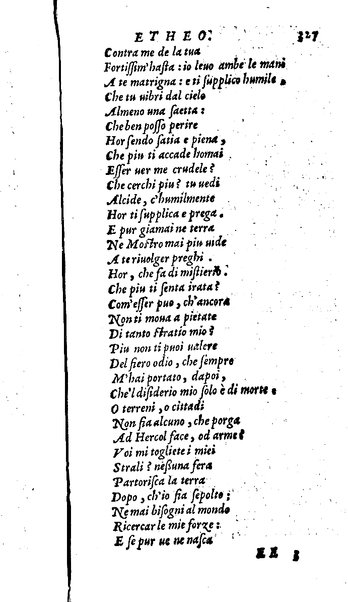 ETHEO. 327
Contra me de la tua
Fortissim'hasta: io leuo ambe le mani
A te matrigna: e ti supplico humile,
Che tu uibri dal cielo
Almeno una saetta:
Che ben posso perire
Hor sendo satia e piena,
Che piu ti accade homai
Esser uer me crudele?
Che cerchi piu? tu uedi
Alcide, c'humilmente
Hor ti supplica e prega.
E pur giamai ne terra
Ne Mostro mai piu uide
A te riuolger preghi.
Hor, che fa di mistiero.
Che piu ti senta irata?
Com'esser puo, ch'ancora
Non ti moua a pietate
Di tanto stratio mio?
Piu non ti puoi ualere
Del fiero odio, che sempre
M'hai portato, dapoi,
Che'l disiderio mio solo è di morte.
O terreni, o cittadi
Non fia alcuno, che porga
Ad Hercol face, od arme?
Voi mi togliete i miei
Strali? nessuna fera
Partorisca la terra
Dopo, ch'io sia sepolto;
Ne mai bisogni al mondo
Ricercar le mie forze:
E se pur ue ne nasca
EE 3